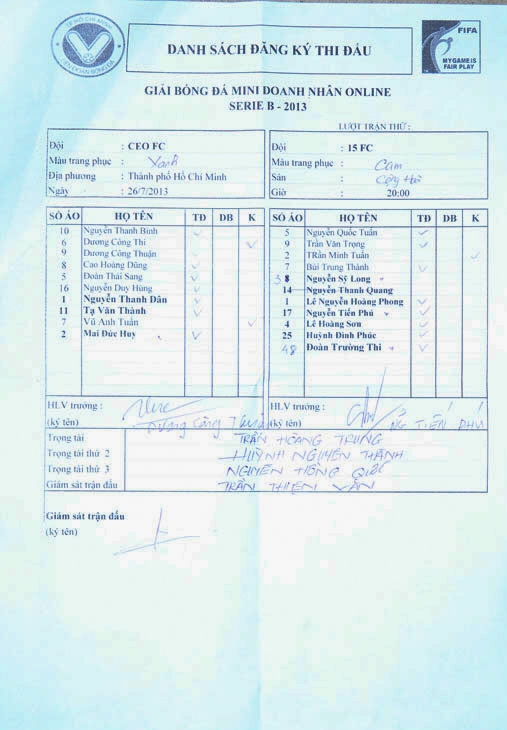 TP HỒ CHÍ MINH
LIÊN ĐOÀN BÓNG ĐÁ
DANH SÁCH ĐĂNG KÝ THI ĐẤU
FIFA
MY GAME IS
FAIR PLAY
GIẢI BÓNG ĐÁ MINI DOANH NHÂN ONLINE
SERIE B - 2013
LƯỢT TRẬN THỨ :
Đội : CEO FC
Màu trang phục : Xanh
Địa phương : Thành phố Hồ Chí Minh
Ngày : 26/7/2013
Đội : 15 FC
Màu trang phục : Cam
Sân : Cộng Hoà
Giờ : 20:00
SỐ ÁO HỌ TÊN TĐ DB K
10 Nguyễn Thanh Bình
6 Dương Công Thi
9 Dương Công Thuận
8 Cao Hoàng Dũng
5 Đoàn Thái Sang
16 Nguyễn Duy Hùng
1 Nguyễn Thanh Dân
11 Tạ Văn Thành
7 Vũ Anh Tuấn
2 Mai Đức Huy
SỐ ÁO HỌ TÊN TĐ DB K
5 Nguyễn Quốc Tuấn
9 Trần Văn Trọng
2 TRần Minh Tuấn
7 Bùi Trung Thành
38 Nguyễn Sỹ Long
14 Nguyễn Thanh Quang
1 Lê Nguyễn Hoàng Phong
17 Nguyễn Tiến Phú
4 Lê Hoàng Sơn
25 Huỳnh Đình Phúc
48 Đoàn Trường Thi
HLV trưởng :
(ký tên) Dương Công Thuận
HLV trưởng :
(ký tên) TIẾN PHÚ
Trọng tài TRẦN HOÀNG TRUNG
Trọng tài thứ 2 HUỲNH NGUYỄN THÀNH
Trọng tài thứ 3 NGUYỄN HỒNG QUỐC
Giám sát trận đấu TRẦN THIÊN VĂN
Giám sát trận đấu
(ký tên)